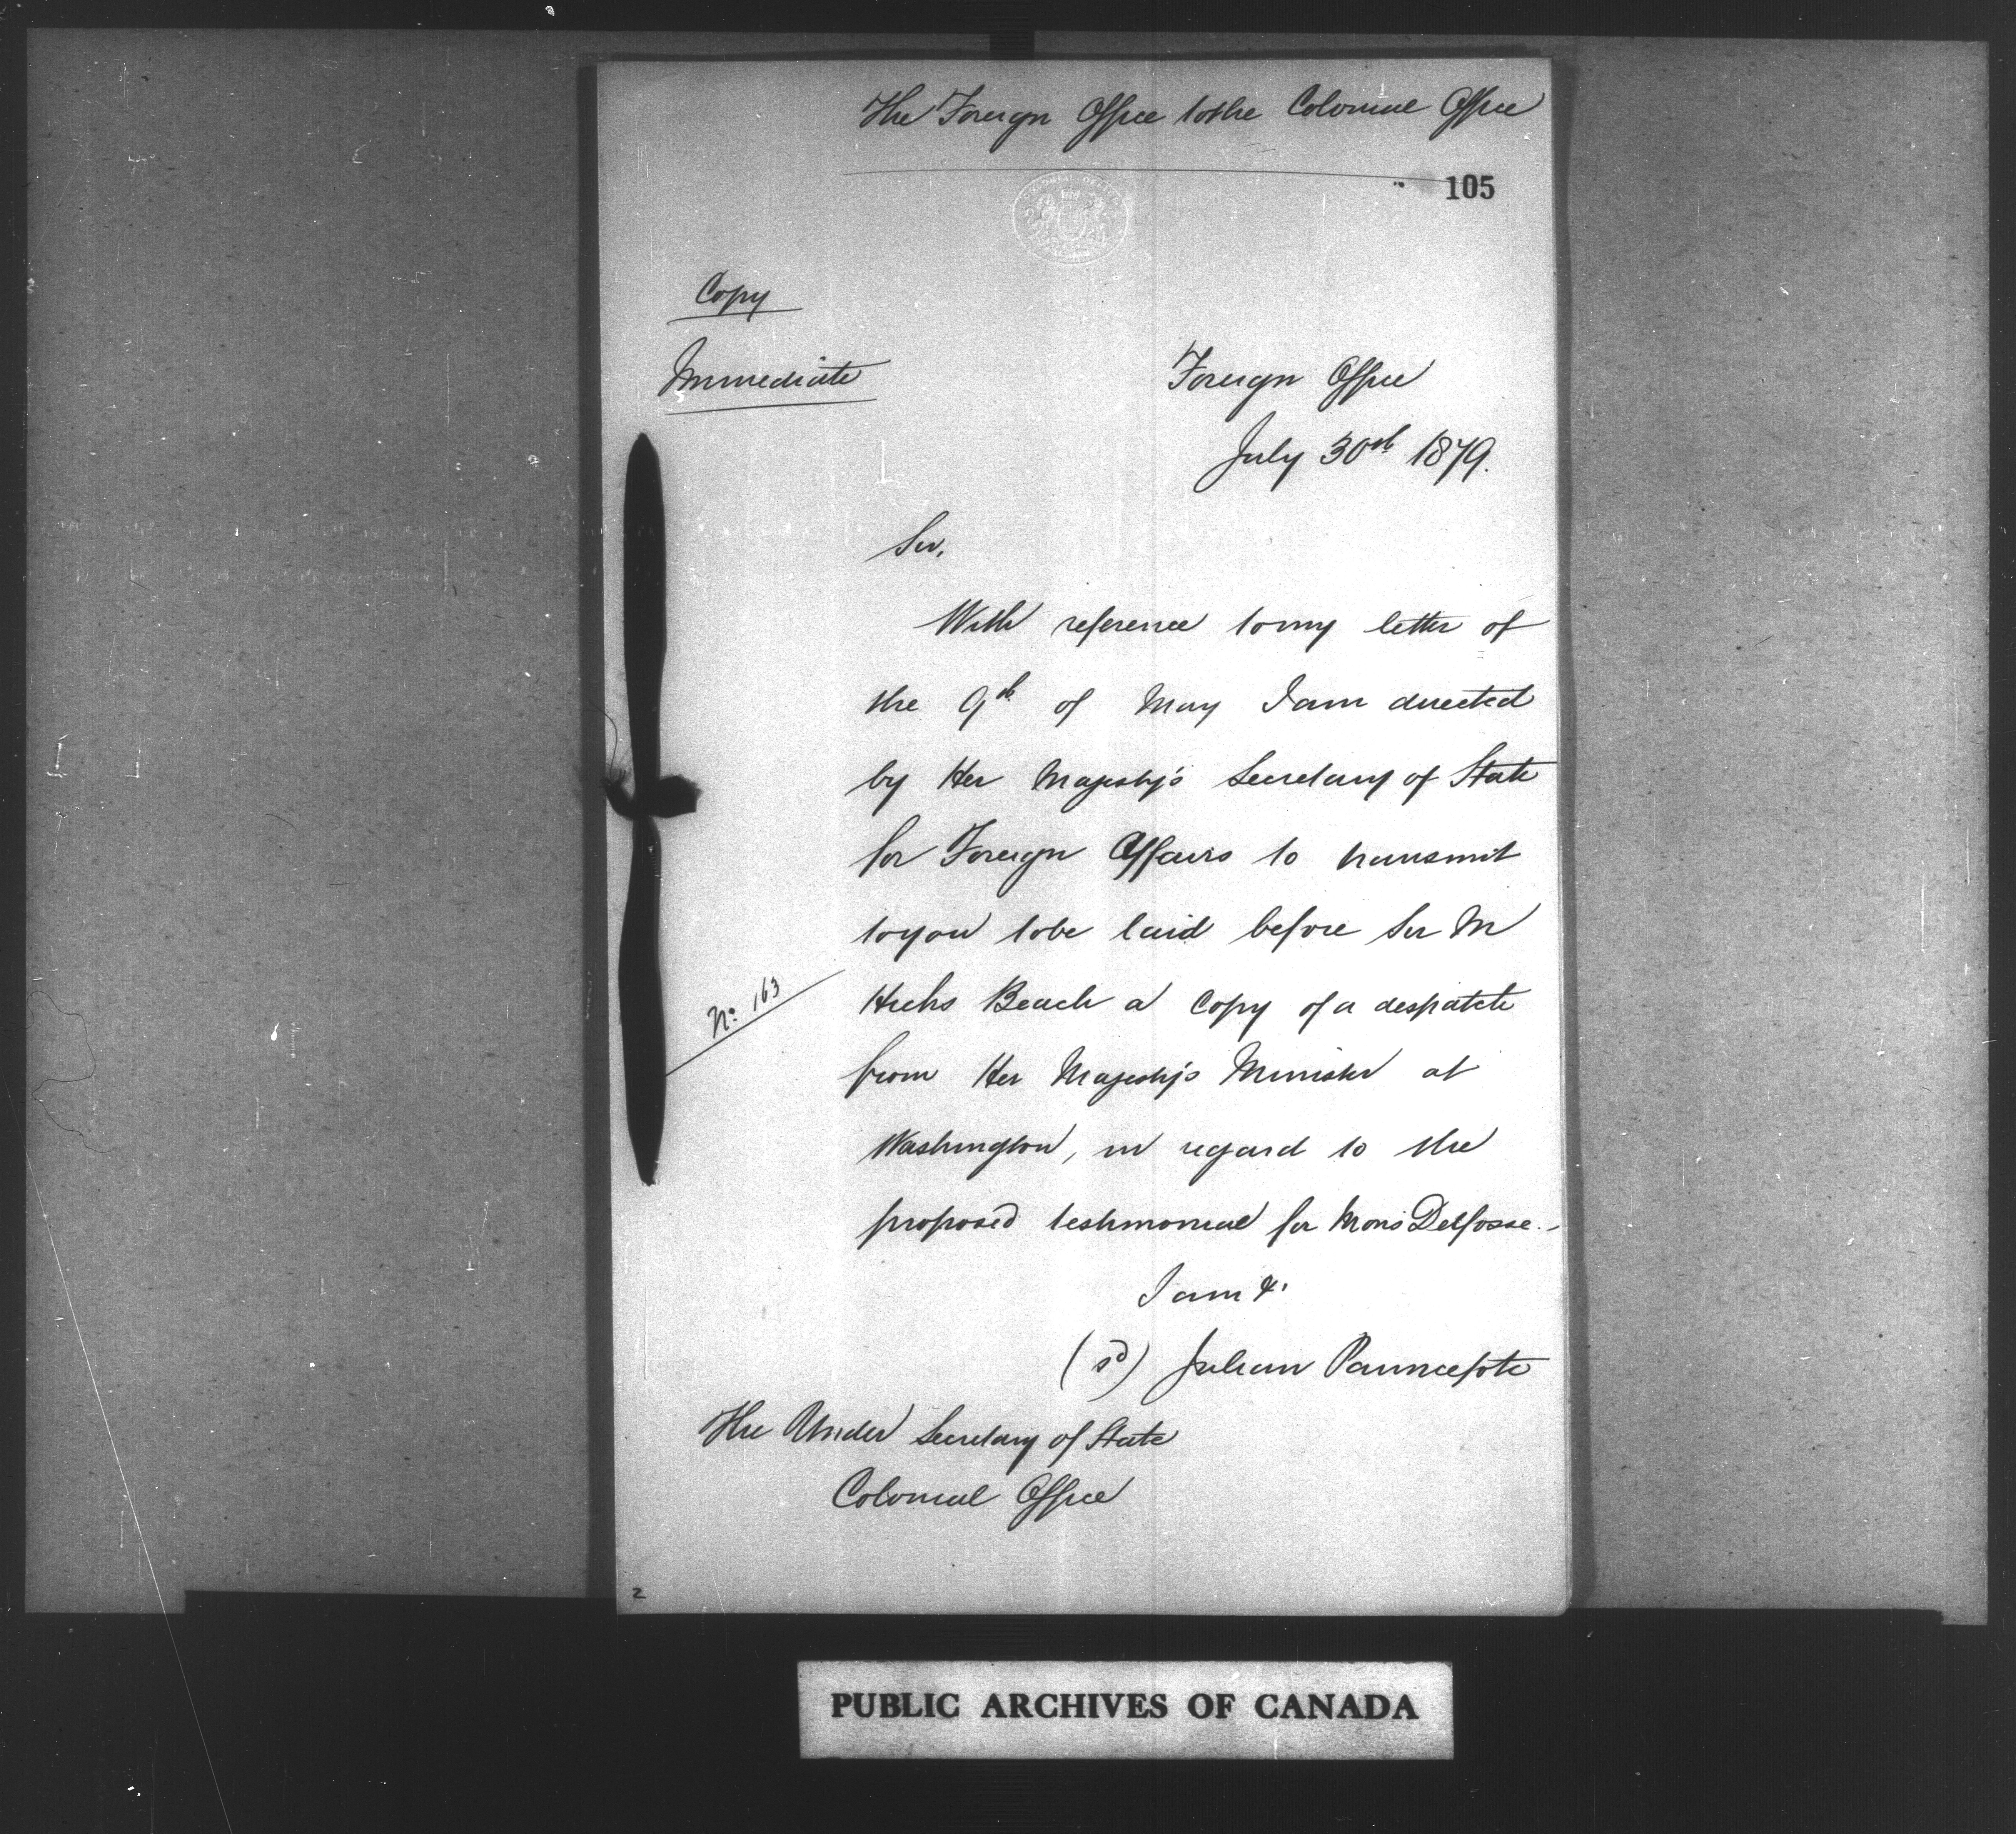 The Foreign Office to the Colonial Office
105
Copy
Immediate
Foreign Office
July 30th 1879.
Sir,
With reference to my letter of
the 9th of May I am directed
by Her Majesty's Secretary of State
for Foreign Affairs to transmit
to you to be laid before Sir M
Hicks Beach a Copy of a despatch
No. 163
from Her Majesty's Minister at
Washington, in regard to the
proposed testimonial for Mons Delfosse.-
I am &.
(sd) Julian Pauncefote
The Under Secretary of State
Colonial Office
2
PUBLIC ARCHIVES OF CANADA